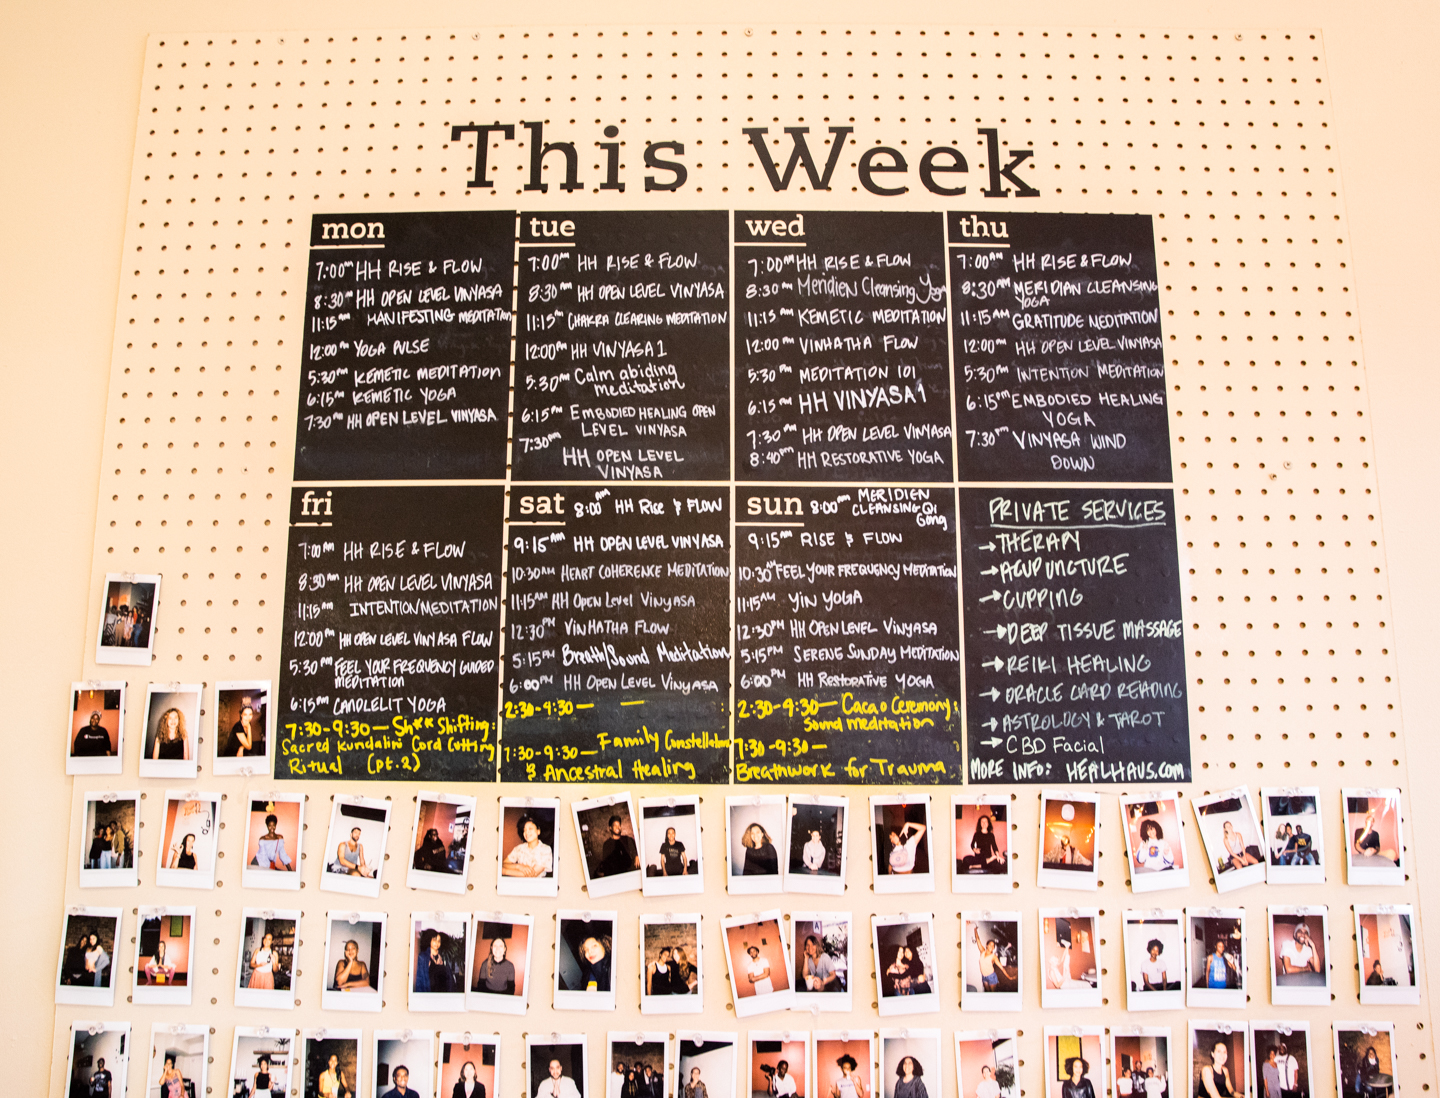 This Week
mon
7:00AM HH RISE & FLOW
8:30AM HH OPEN LEVEL VINYASA
11:15AM MANIFESTING MEDITATION
12:00PM YOGA PULSE
5:30PM KEMETIC MEDITATION
6:15PM KEMETIC YOGA
7:30PM HH OPEN LEVEL VINYASA
tue
7:00AM HH RISE & FLOW
8:30AM HH OPEN LEVEL VINYASA
11:15AM CHAKRA CLEARING MEDITATION
12:00PM HH VINYASA 1
5:30PM Calm abiding
meditation
6:15PM EMBODIED HEALING OPEN
LEVEL VINYASA
7:30PM
HH OPEN LEVEL
VINYASA
wed
7:00AM HH RISE & FLOW
8:30AM Meridien Cleansing Yoga
11:15AM KEMETIC MEDITATION
12:00PM VINHATHA FLOW
5:30PM MEDITATION 101
6:15PM HH VINYASA 1
7:30PM HH OPEN LEVEL VINYASA
8:40PM HH RESTORATIVE YOGA
thu
7:00AM HH RISE & FLOW
8:30AM MERIDIAN CLEANSING
YOGA
11:15AM GRATITUDE MEDITATION
12:00PM HH OPEN LEVEL VINYASA
5:30PM INTENTION MEDITATION
6:15PM EMBODIED HEALING
YOGA
7:30PM VINYASA WIND
DOWN
fri
7:00AM HH RISE & FLOW
8:30AM HH OPEN LEVEL VINYASA
11:15AM INTENTION MEDITATION
12:00PM HH OPEN LEVEL VINYASA FLOW
5:30PM FEEL YOUR FREQUENCY GUIDED
MEDITATION
6:15PM CANDLELIT YOGA
7:30-9:30— Sh** Shifting:
Sacred Kundalini Cord Cutting
Ritual (Pt.2)
sat
8:00AM HH Rise & FLOW
9:15AM HH OPEN LEVEL VINYASA
10:30AM HEART COHERENCE MEDITATION
11:15AM HH OPEN LEVEL VINYASA
12:30PM VINHATHA FLOW
5:15PM Breath/Sound Meditation
6:00PM HH OPEN LEVEL VINYASA
2:30-9:30— — :
7:30-9:30— Family Constellation
& Ancestral Healing
sun
8:00AM MERIDIEN
CLEANSING Qi
Gong
9:15AM RISE & FLOW
10:30AM FEEL YOUR FREQUENCY MEDITATION
11:15AM YIN YOGA
12:30PM HH OPEN LEVEL VINYASA
5:15PM SERENE SUNDAY MEDITATION
6:00PM HH RESTORATIVE YOGA
2:30-9:30— Cacao Ceremony &
Sound meditation
7:30-9:30—
Breathwork for Trauma
PRIVATE SERVICES
→THERAPY
→ACUPUNCTURE
→CUPPING
→DEEP TISSUE MASSAGE
→REIKI HEALING
→ORACLE CARD READING
→ASTROLOGY & TAROT
→CBD Facial
MORE INFO: HEALHAUS.COM